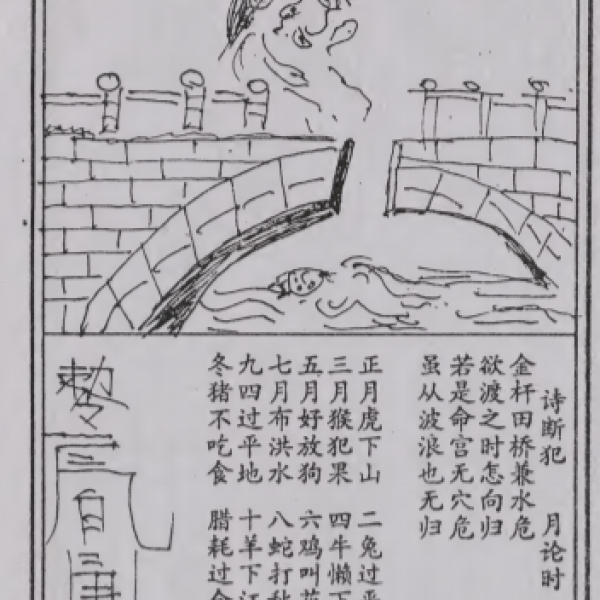 诗断犯 月论时
金杆田桥兼水危
欲渡之时怎向归
若是命宫无穴危
虽从波浪也无归
正月虎下山 二兔过平
三月猴犯果 四牛懒下
五月好放狗 六鸡叫花
七月布洪水 八蛇打秋
九四过平地 十羊下江
冬猪不吃食 腊耗过仓
敕令